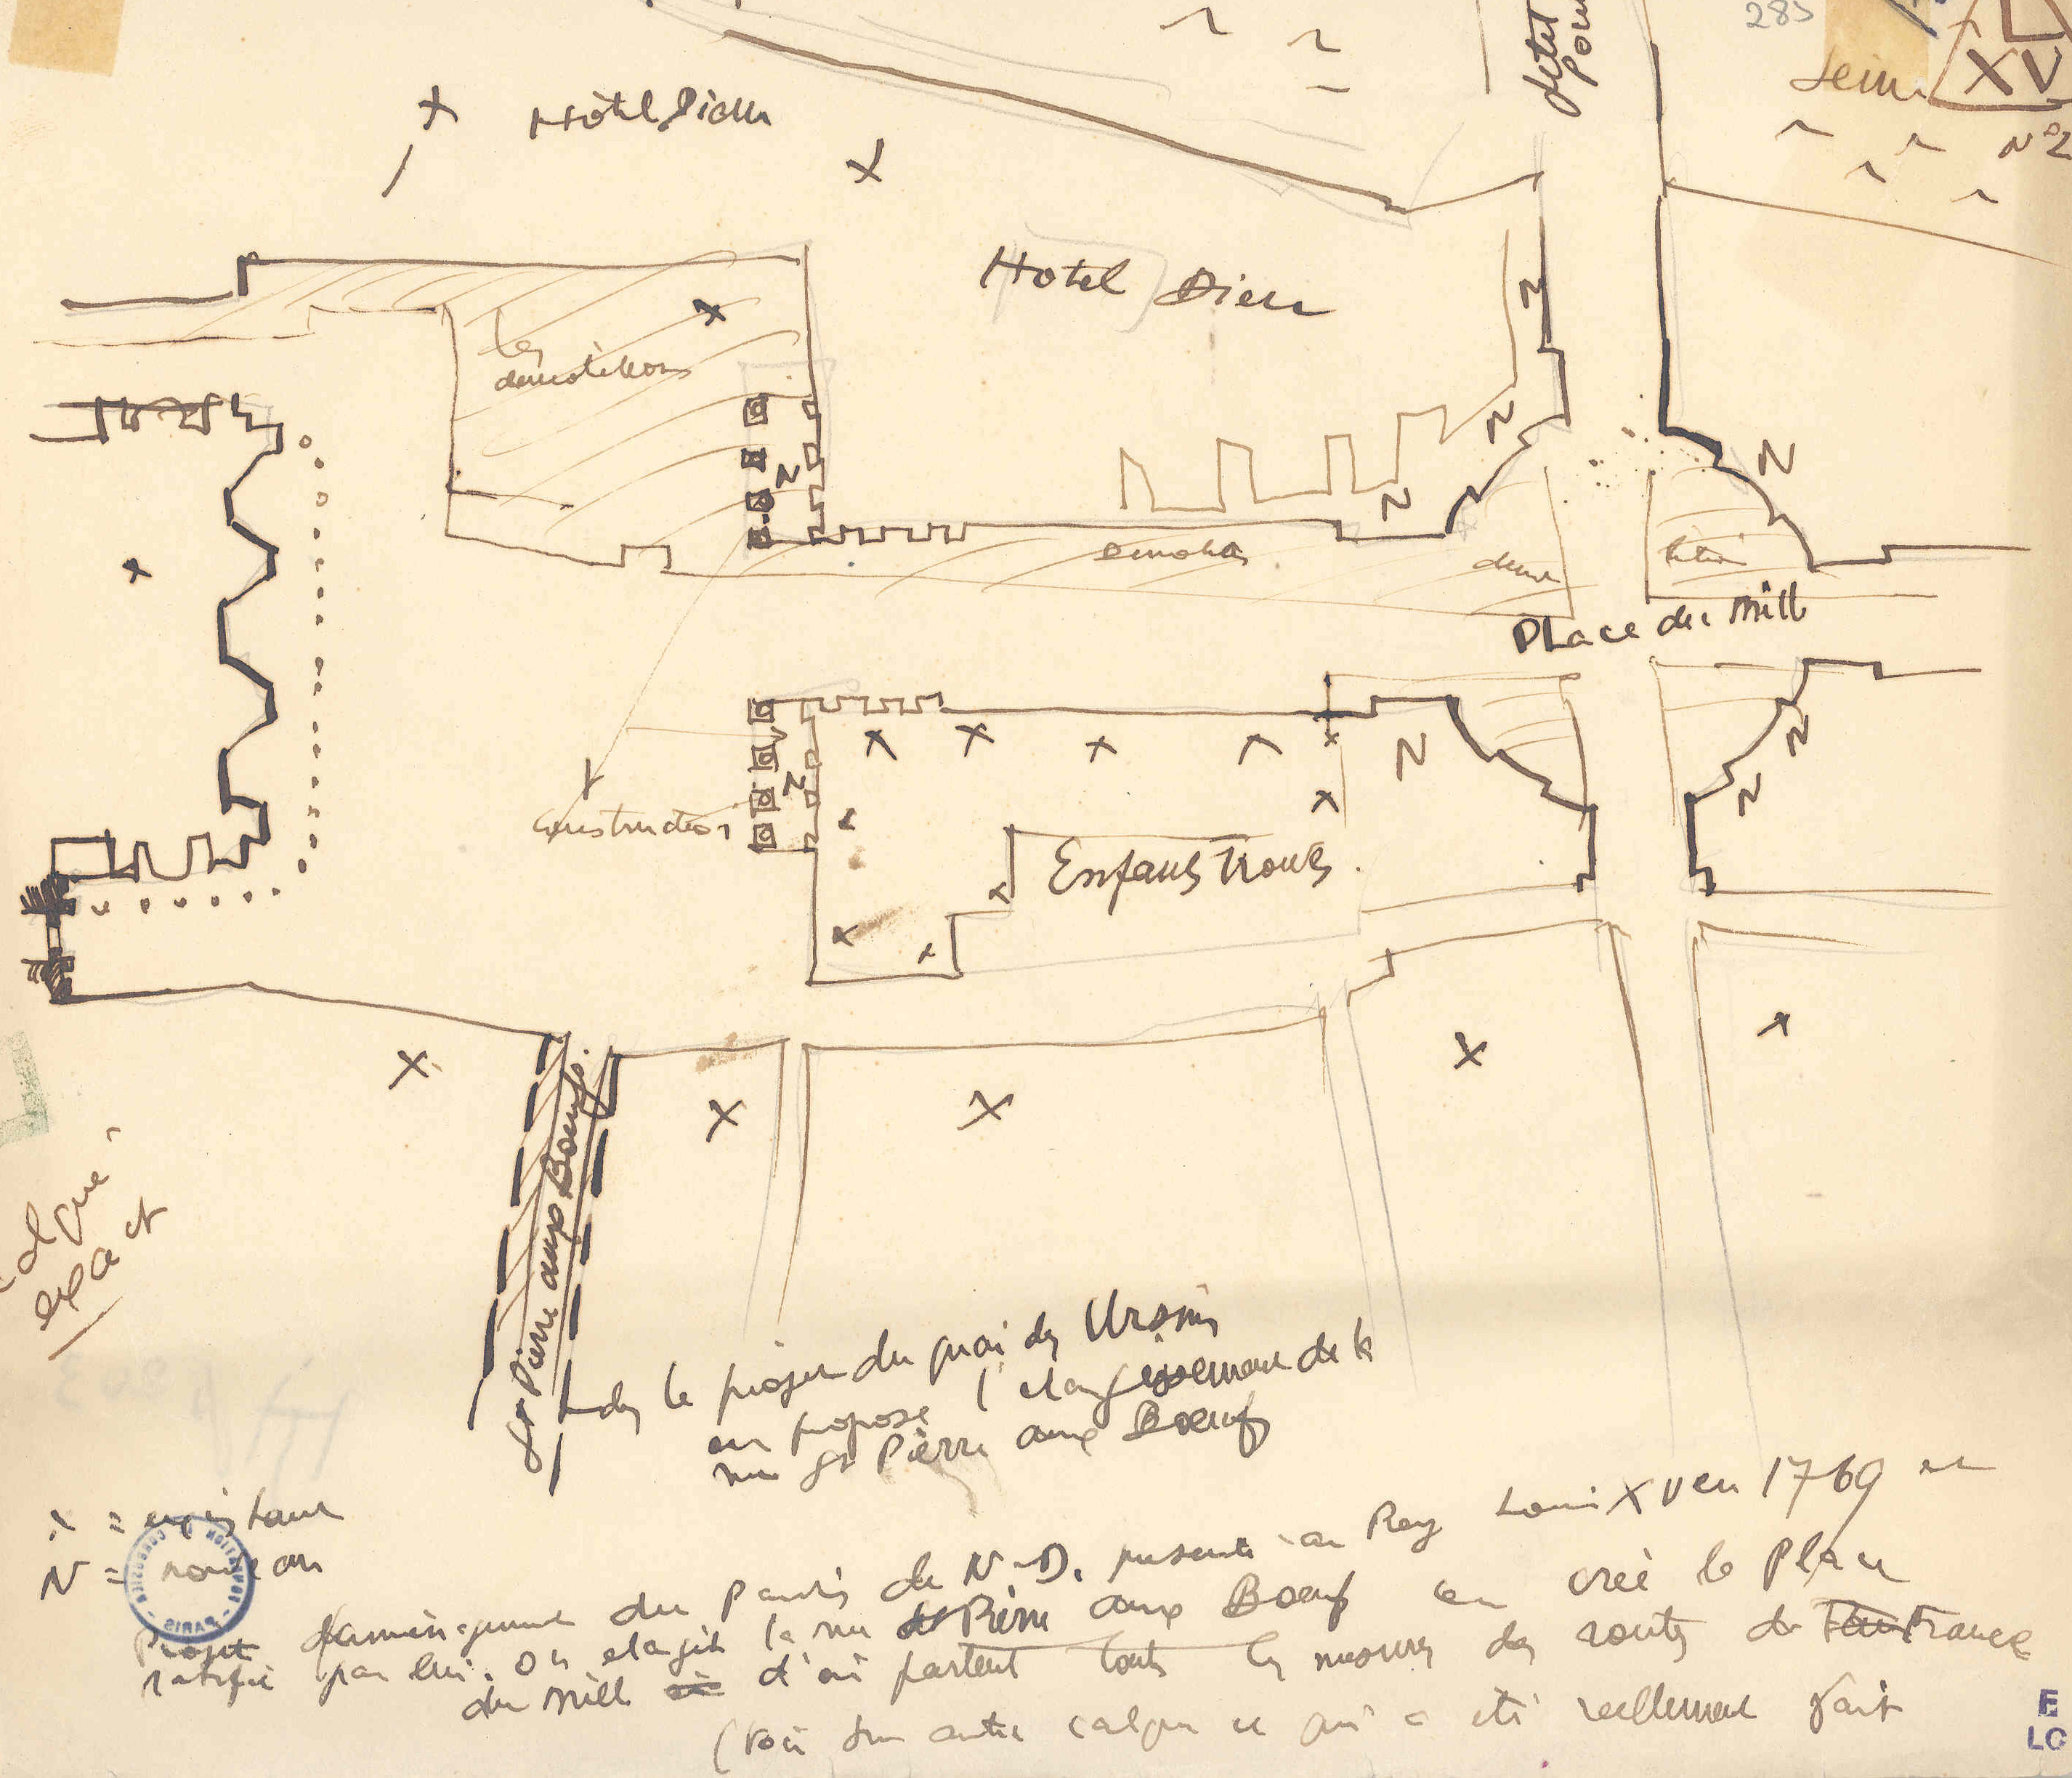 285
Petit
Pont
Seine
XV
N°2
Hôtel Dieu
Hotel Dieu
N
les
démolitions
N
N
N
N
démolition
démo
lition
Place du Mill
N
N
N
N
construction
Enfants trouvés
St Pierre aux Boeufs
calque
exact
ds le projet du quai des Ursins
on propose l'elargissement de la
rue St Pierre aux Boeufs
x = existant
N = nouveau
Projet d'aménagement du Parvis de N-D. présenté au Roy Louis XV en 1769 et
ratifié par lui. On elargit la rue St Pierre aux Boeufs on crée la Place
du Mill d'où partent toutes les mesures des routes de France
(voir sur autre calque ce qui a été réellement fait
PARIS
E
LC